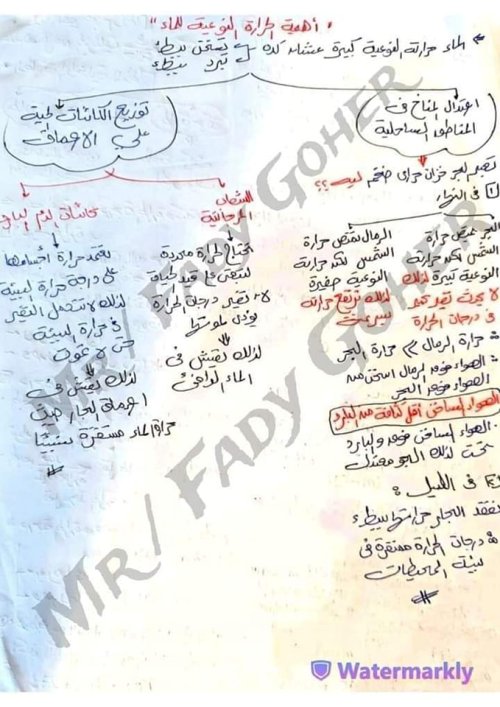 "أهمية الحرارة النوعية للماء"
الماء حرارته النوعية كبيرة عشان كده يسخن ببطء
يبرد ببطء
اعتدال المناخ فى
المناطق الساحلية
تعتبر البحر خزان حرارى ضخم ليه؟؟
1 فى النهار
البحر يمتص حرارة
الشمس لكن حرارته
النوعية كبيرة لذلك
لا يحدث تغير كبير
فى درجات الحرارة
الرمال تمتص حرارة
الشمس لكن حرارته
النوعية صغيرة
لذلك ترتفع حرارته
بسرعة
حرارة الرمال >> حرارة البحر
الهواء فوق الرمال اسخن من
الهواء فوق البحر
الهواء الساخن أقل كثافة من البارد
الهواء الساخن فوق والبارد
تحت لذلك الجو معتدل
2 فى الليل:
تفقد البحار حرارتها ببطء
درجات الحرارة مستقرة فى
بيئة المحيطات
#
توزيع الكائنات الحية
على الأعماق
الشعاب
المرجانية
تحتاج لحرارة محددة
لتبقى على قيد الحياة
لا تغير درجات الحرارة
يؤدى لموتها
لذلك تعيش فى
الماء الدافئ
كائنات الدم البارد
تعتمد حرارة أجسامها
على درجة حرارة البيئة
لذلك لا تتحمل التغير
فى حرارة البيئة
حتى لا تموت
لذلك تعيش فى
أعماق البحار حيث
حرارة الماء مستقرة نسبياً
#
Mr/ Fady Goher
Mr/ Fady Goher
Watermarkly